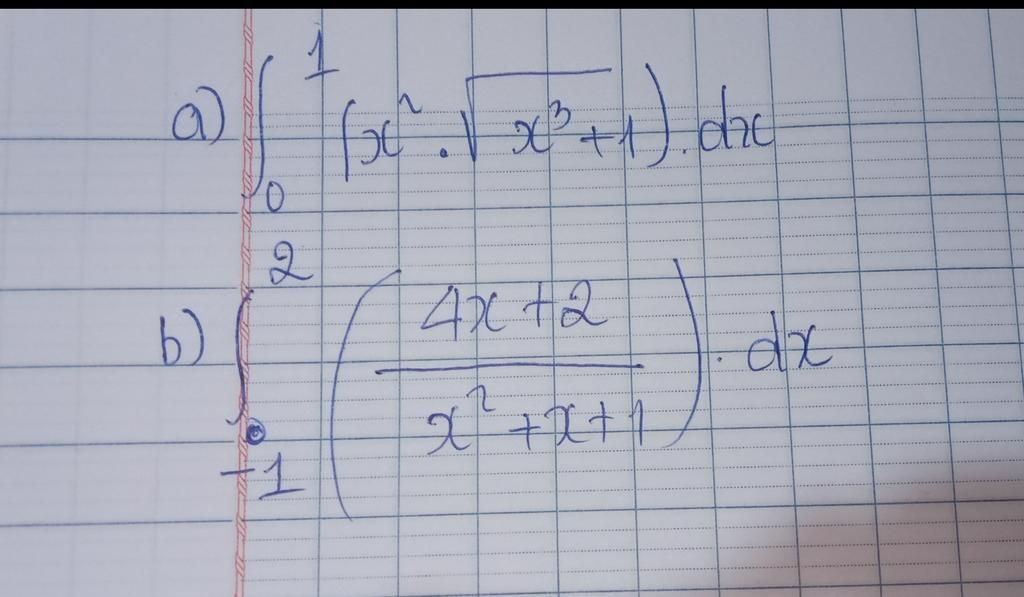 a) ∫₀¹ (x² . √(x³+1)) . dx
b) ∫₋₁² ((4x+2)/(x²+x+1)) . dx